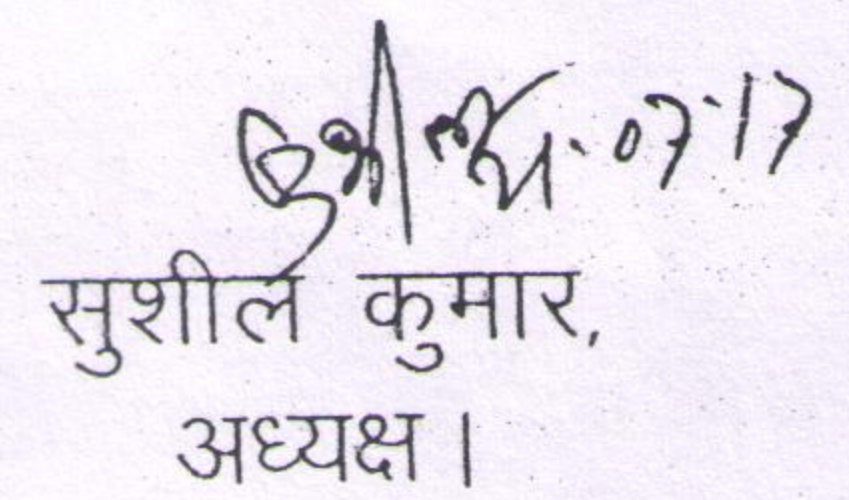 07.17
सुशील कुमार,
अध्यक्ष।